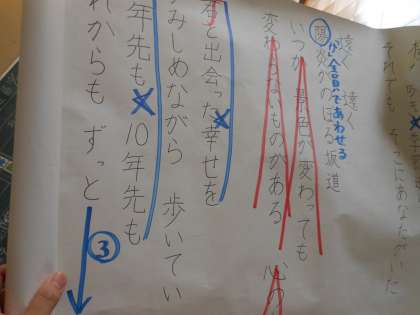 それでも そこにあなたがいた
遠く 遠く
全員であわせる
陽炎がのぼる坂道
いつか 景色が変わっても
変わらないものがある 心の
と出会った幸せを
みしめながら 歩いてい
年先も 10年先も
れからも ずっと
③